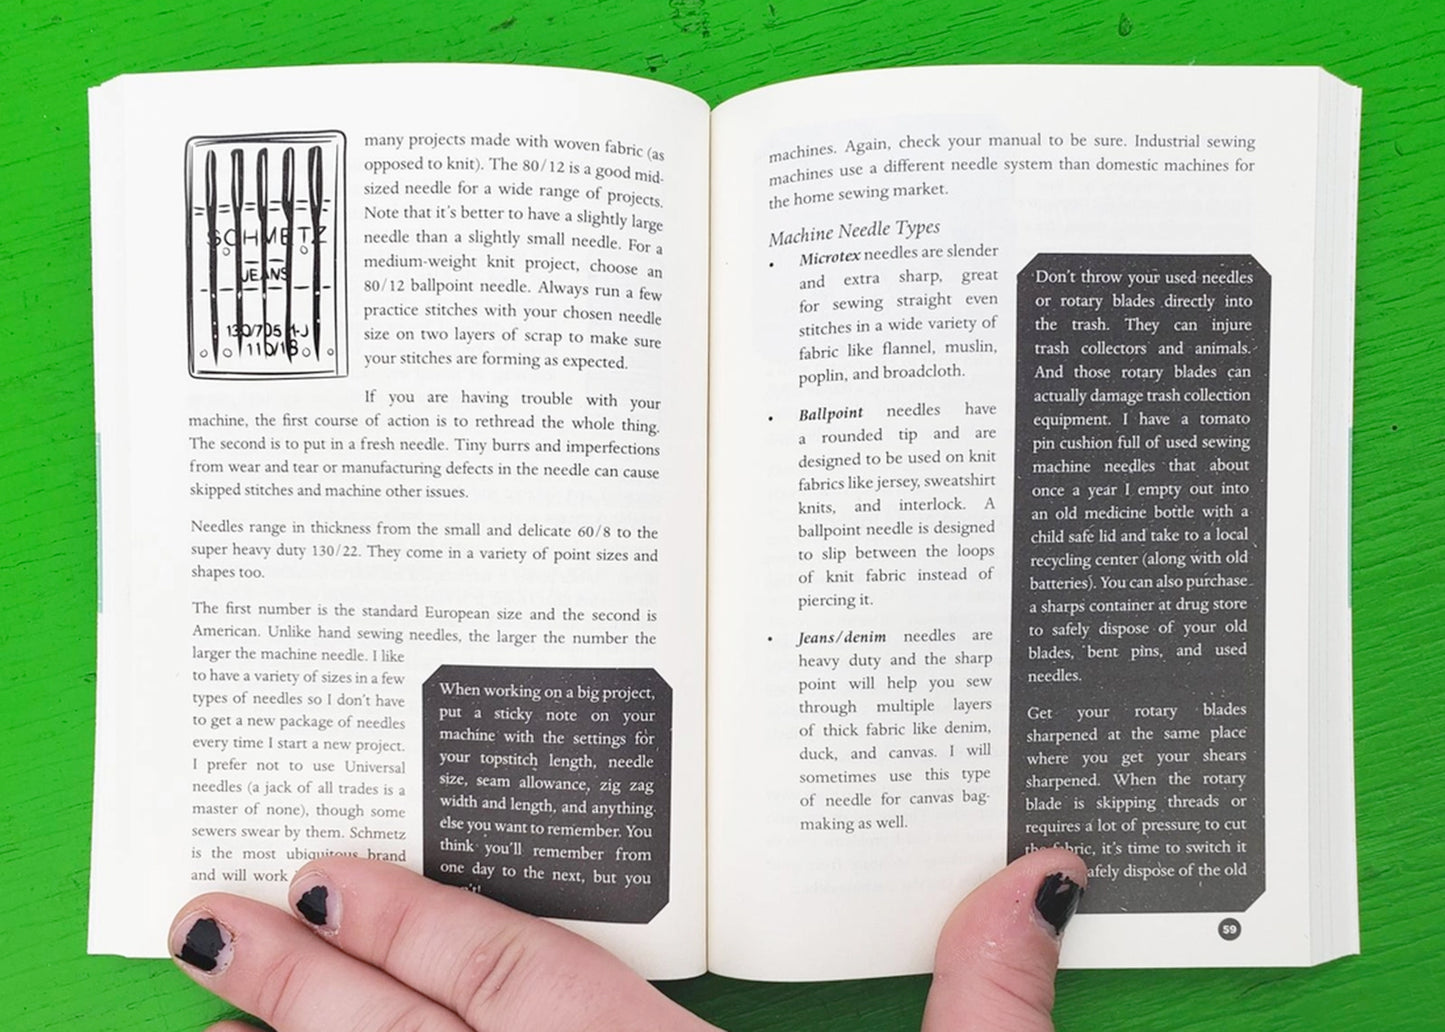 SCHMETZ
JEANS
130/705 H-J
110/18
many projects made with woven fabric (as
opposed to knit). The 80/12 is a good mid-
sized needle for a wide range of projects.
Note that it's better to have a slightly large
needle than a slightly small needle. For a
medium-weight knit project, choose an
80/12 ballpoint needle. Always run a few
practice stitches with your chosen needle
size on two layers of scrap to make sure
your stitches are forming as expected.
If you are having trouble with your
machine, the first course of action is to rethread the whole thing.
The second is to put in a fresh needle. Tiny burrs and imperfections
from wear and tear or manufacturing defects in the needle can cause
skipped stitches and machine other issues.
Needles range in thickness from the small and delicate 60/8 to the
super heavy duty 130/22. They come in a variety of point sizes and
shapes too.
The first number is the standard European size and the second is
American. Unlike hand sewing needles, the larger the number the
larger the machine needle. I like
to have a variety of sizes in a few
types of needles so I don't have
to get a new package of needles
every time I start a new project.
I prefer not to use Universal
needles (a jack of all trades is a
master of none), though some
sewers swear by them. Schmetz
is the most ubiquitous brand
and will work
When working on a big project,
put a sticky note on your
machine with the settings for
your topstitch length, needle
size, seam allowance, zig zag
width and length, and anything
else you want to remember. You
think you'll remember from
one day to the next, but you
machines. Again, check your manual to be sure. Industrial sewing
machines use a different needle system than domestic machines for
the home sewing market.
Machine Needle Types
• Microtex needles are slender
and extra sharp, great
for sewing straight even
stitches in a wide variety of
fabric like flannel, muslin,
poplin, and broadcloth.
• Ballpoint needles have
a rounded tip and are
designed to be used on knit
fabrics like jersey, sweatshirt
knits, and interlock. A
ballpoint needle is designed
to slip between the loops
of knit fabric instead of
piercing it.
• Jeans/denim needles are
heavy duty and the sharp
point will help you sew
through multiple layers
of thick fabric like denim,
duck, and canvas. I will
sometimes use this type
of needle for canvas bag-
making as well.
Don't throw your used needles
or rotary blades directly into
the trash. They can injure
trash collectors and animals.
And those rotary blades can
actually damage trash collection
equipment. I have a tomato
pin cushion full of used sewing
machine needles that about
once a year I empty out into
an old medicine bottle with a
child safe lid and take to a local
recycling center (along with old
batteries). You can also purchase
a sharps container at drug store
to safely dispose of your old
blades, bent pins, and used
needles.
Get your rotary blades
sharpened at the same place
where you get your shears
sharpened. When the rotary
blade is skipping threads or
requires a lot of pressure to cut
the fabric, it's time to switch it
afely dispose of the old
59